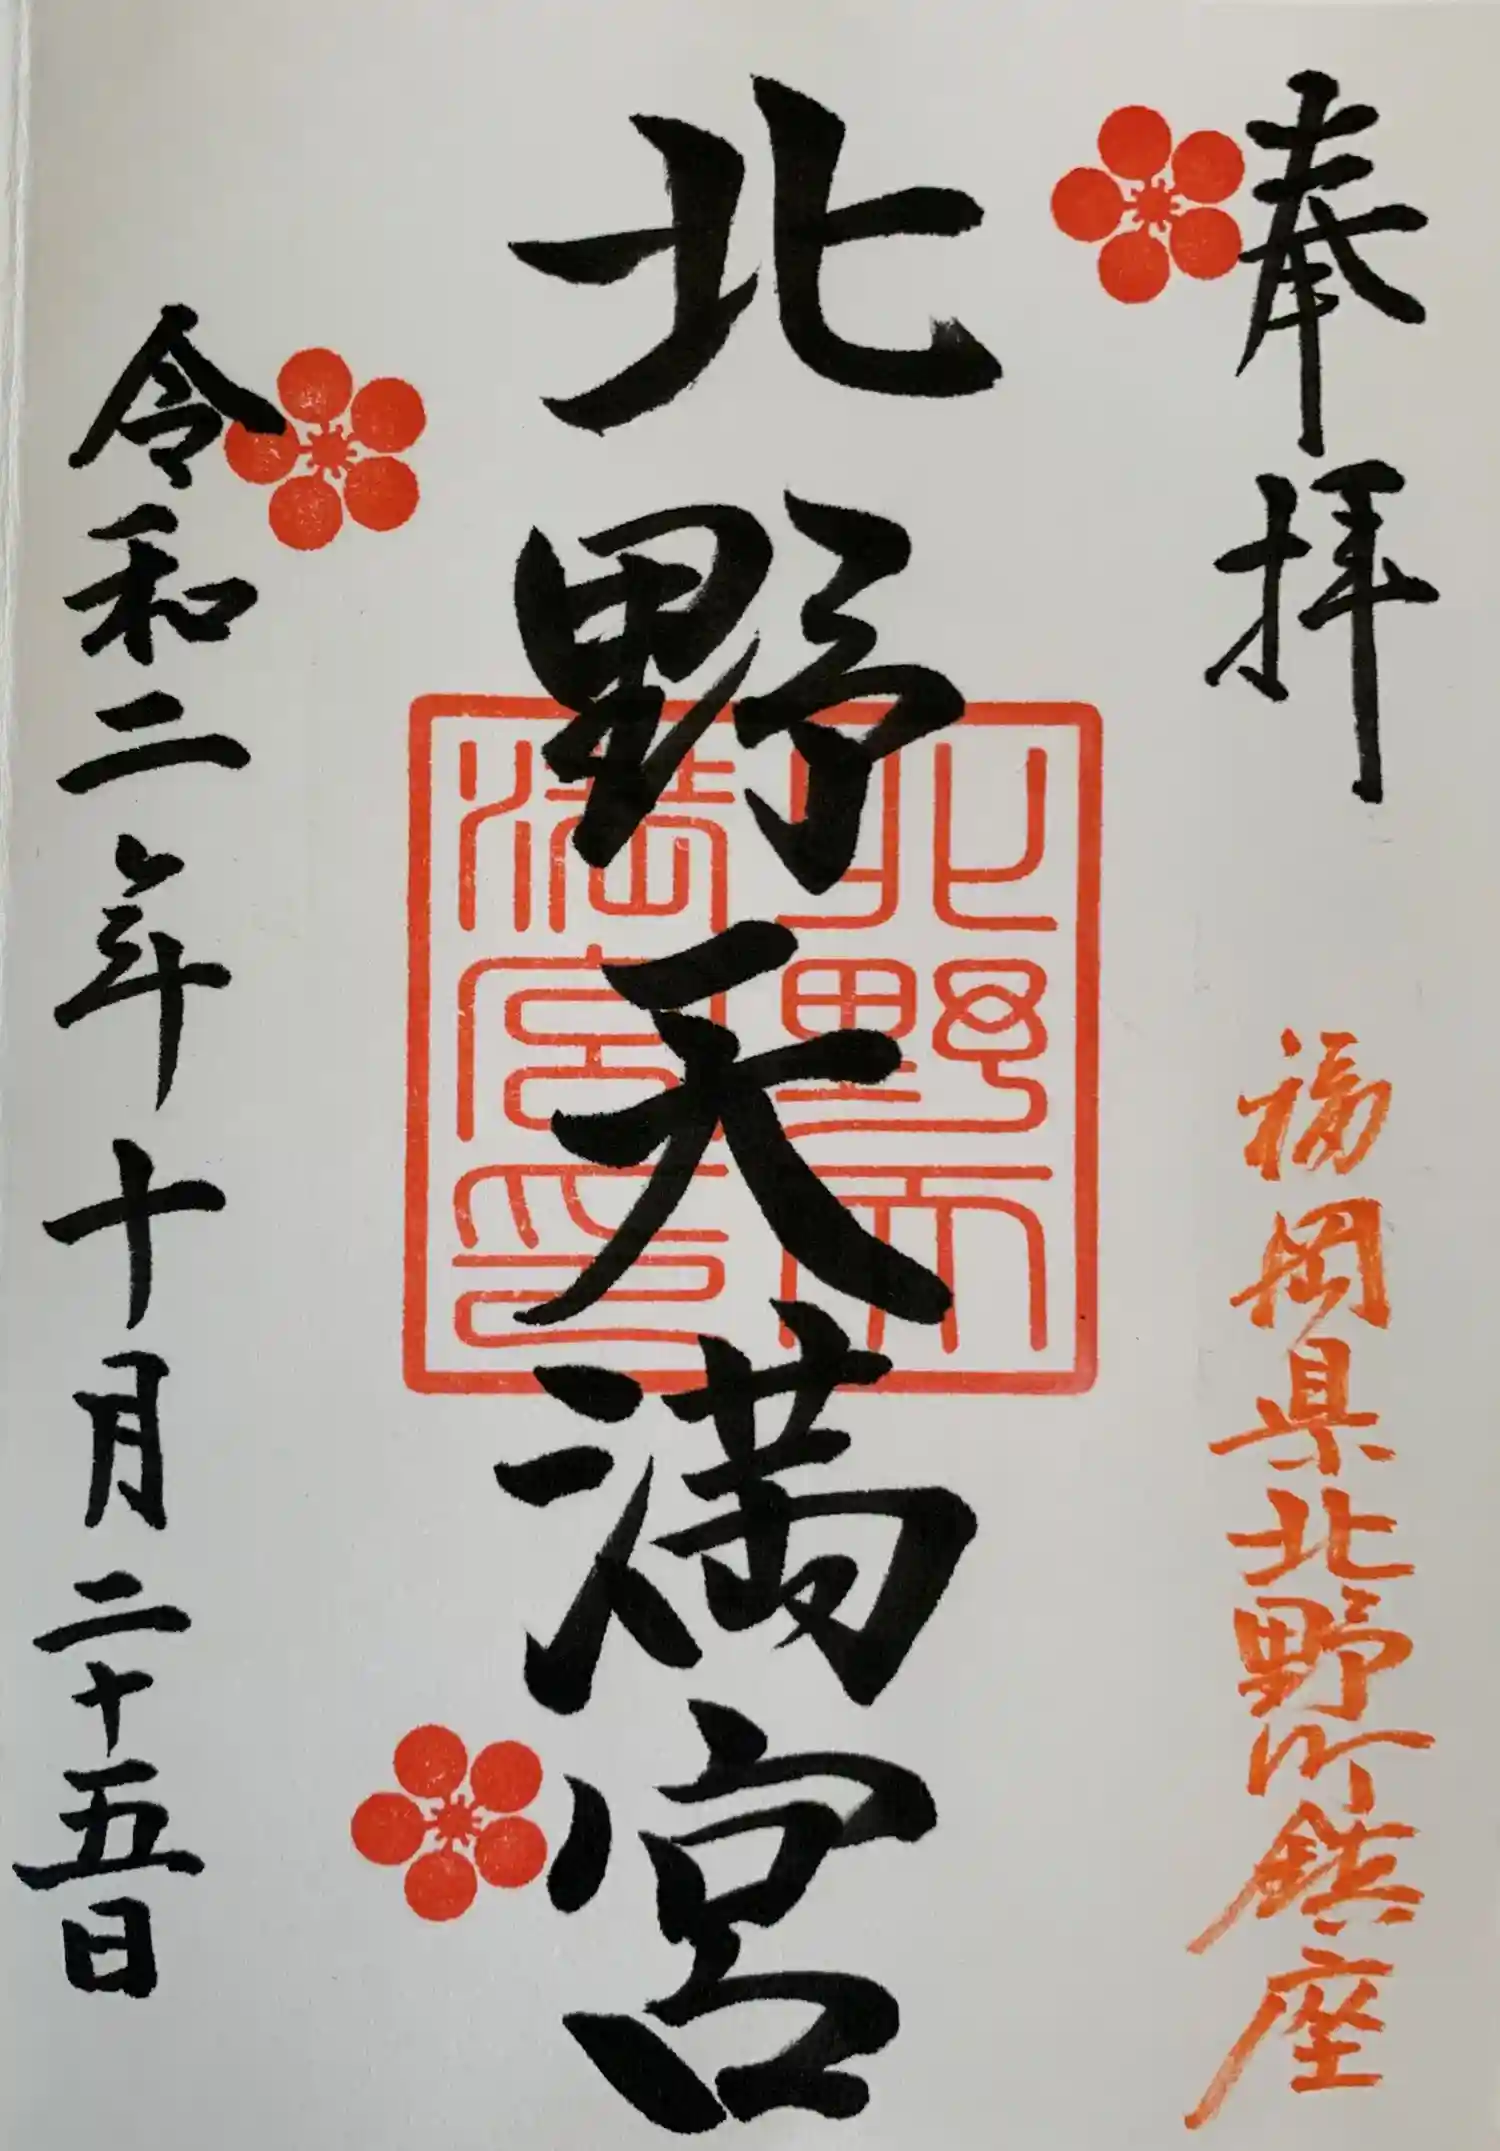 奉拝
福岡県北野町鎮座
北野天満宮
北野天
満宮印
令和二年十月二十五日